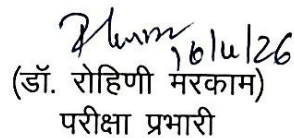 16/4/26
(डॉ. रोहिणी मरकाम)
परीक्षा प्रभारी